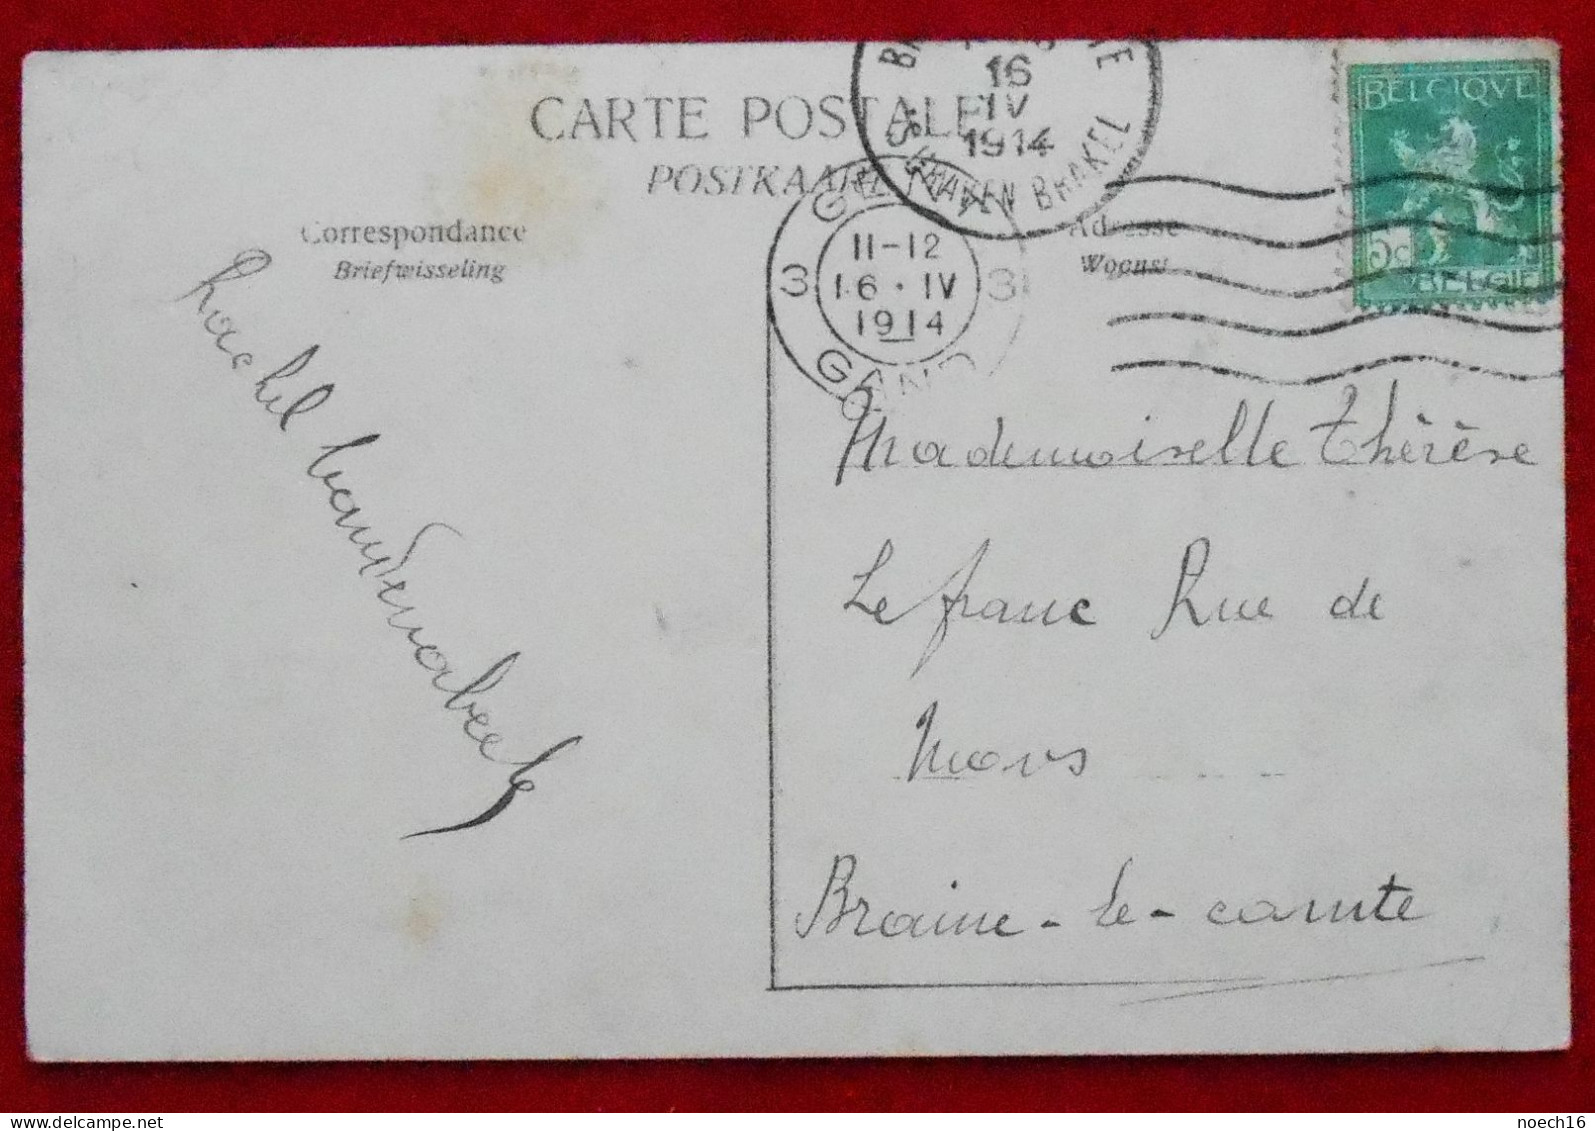 CARTE POSTALE
POSTKAART
Correspondance
Briefwisseling
Adresse
Woonst
16
IV
1914
'S GRAVEN BRAKEL
GENT
3 11-12 3
16 · IV
1914
GAND
BELGIQUE
5c
BELGIË
Rachel Vandenabeele
Mademoiselle Thérèse
Lefranc Rue de
Mons
Braine-le-comte
noech16